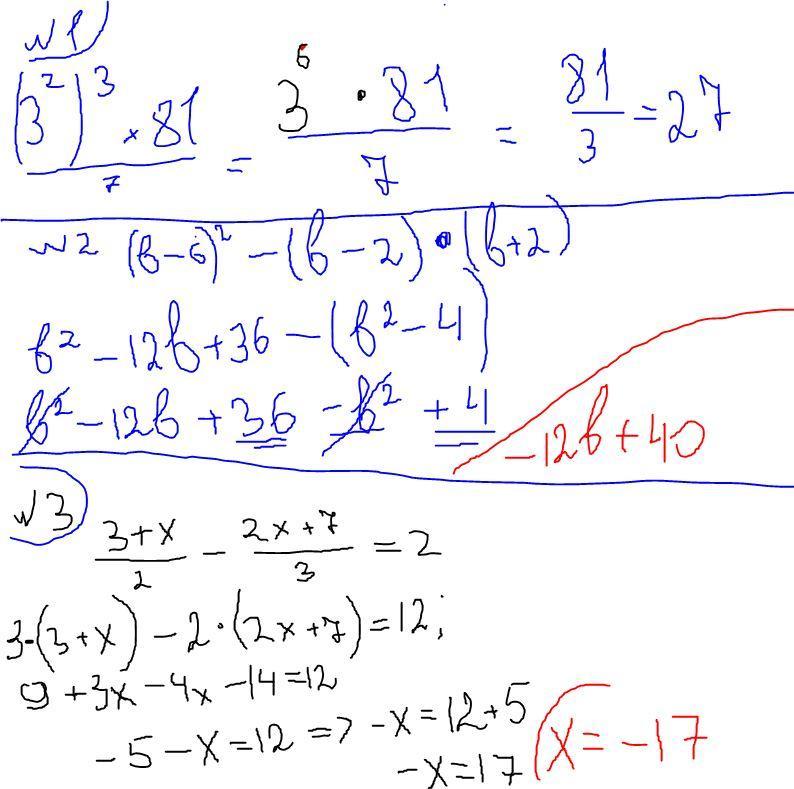 №1
(3²)³ × 81 / 7 = 3⁶ · 81 / 7 = 81 / 3 = 27
№2 (b-6)² - (b-2) · (b+2)
b² - 12b + 36 - (b² - 4)
b² - 12b + 36 - b² + 4
-12b + 40
№3
3+x / 2 - 2x+7 / 3 = 2
3·(3+x) - 2·(2x+7) = 12;
9 + 3x - 4x - 14 = 12
-5 - x = 12 => -x = 12 + 5
-x = 17
x = -17